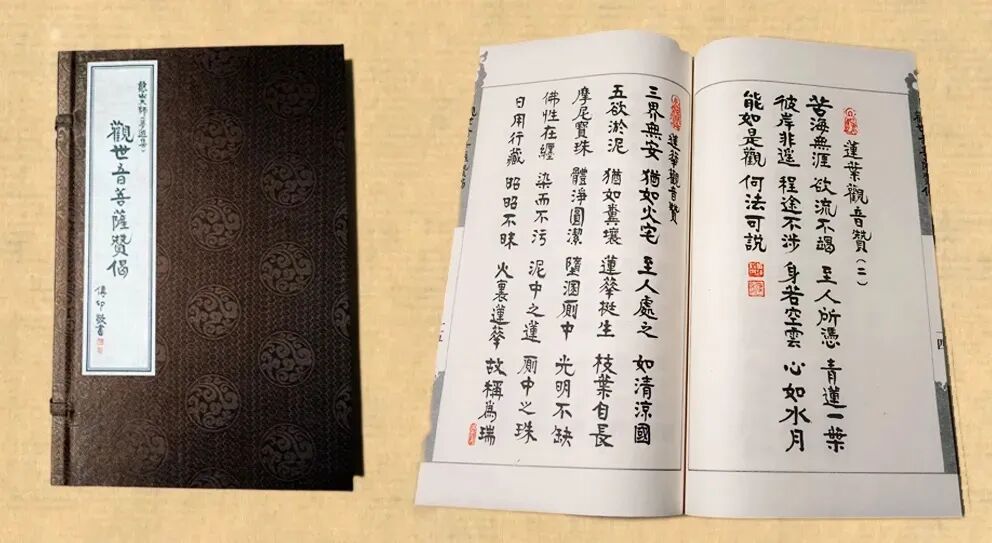 憨山大師(夢遊集)
觀世音菩薩贊偈
傳印敬書
蓮葉觀音贊(二)
苦海無涯 欲流不竭 至人所憑 青蓮一葉
彼岸非遥 程途不涉 身若空雲 心如水月
能如是觀 何法可說
十四
蓮華觀音贊
三界無安 猶如火宅 至人處之 如清涼國
五欲淤泥 猶如糞壤 蓮華挺生 枝葉自長
摩尼寶珠 體淨圓潔 墮溷廁中 光明不缺
佛性在纏 染而不污 泥中之蓮 廁中之珠
日用行藏 昭昭不昧 火裏蓮華 故稱為瑞
十五